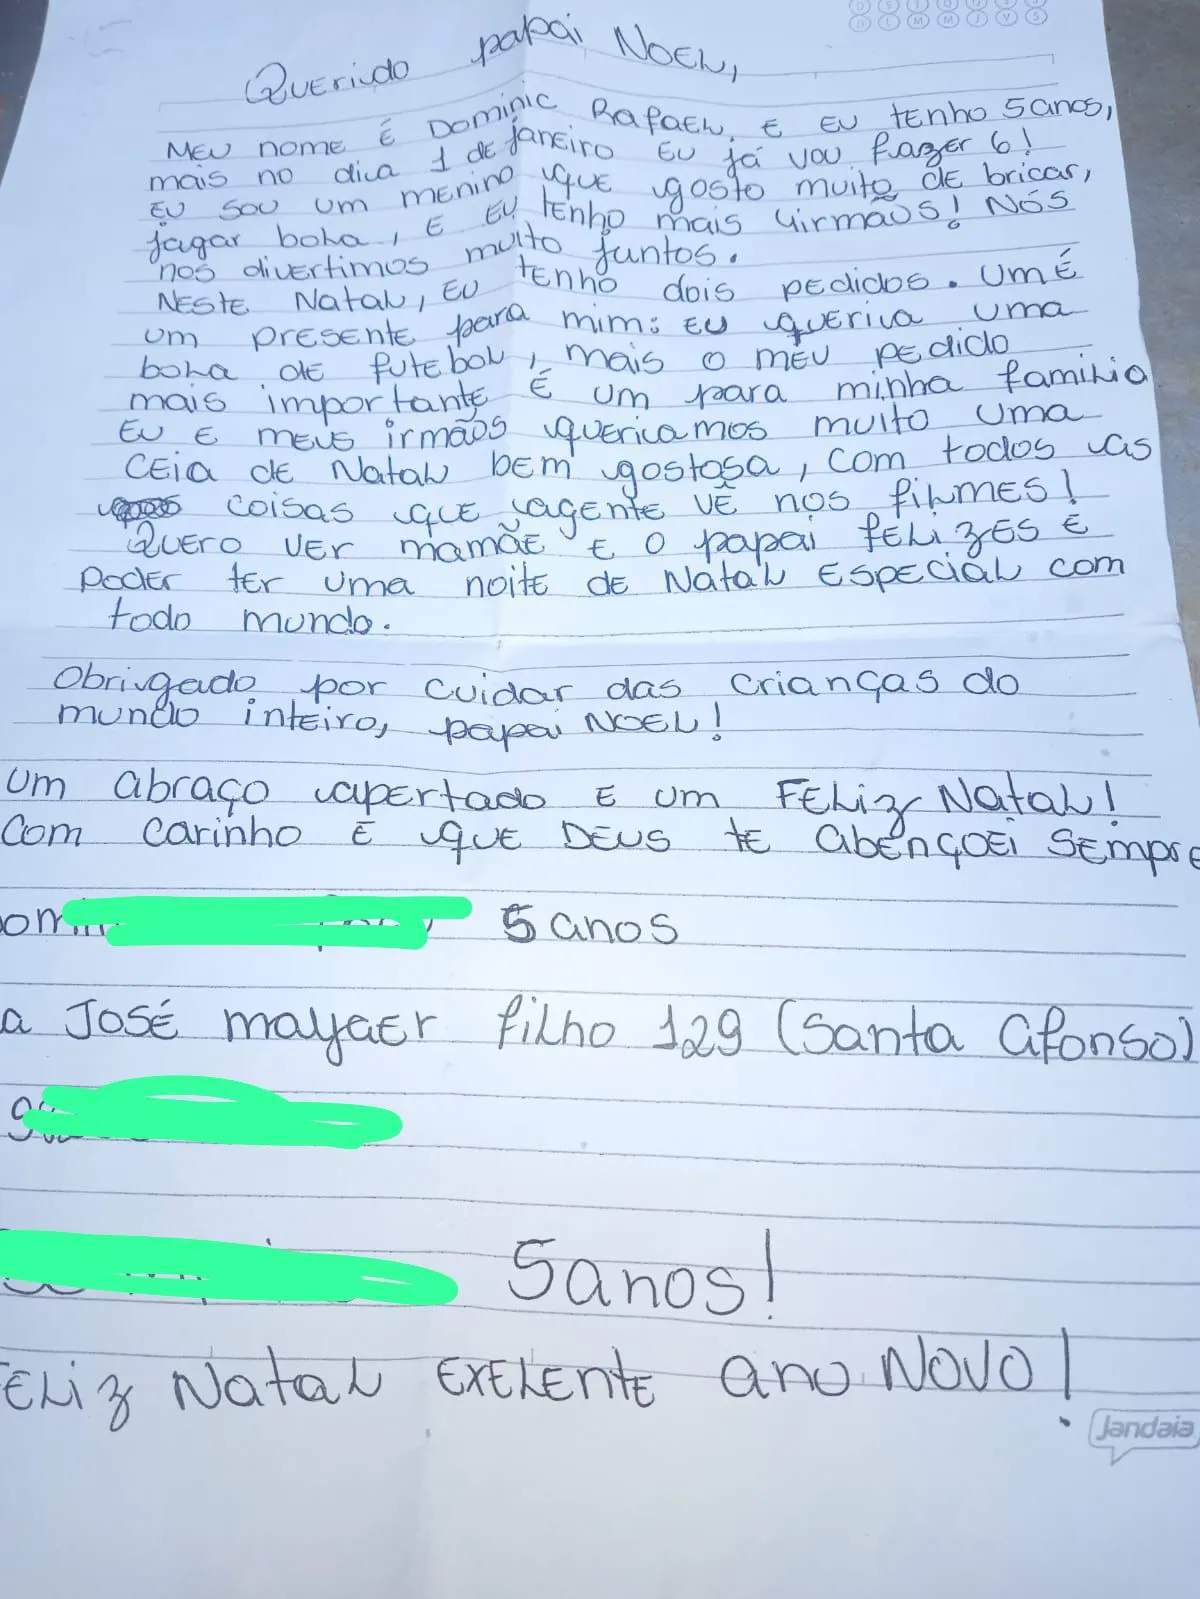 Querido papai NOEL,
MEU nome É DOMINIC RAFAEL, E EU tenho 5 anos,
mais no dia 1 de janeiro EU já vou fazer 6!
EU sou um menino que gosto muito de bricar,
jagar bola, E EU tenho mais 4 irmãos! NÓS
nos divertimos muito juntos.
NESTE Natal, EU tenho dois pedidos. UM É
um presente para mim: EU queria uma
bola de futebol, mais o meu pedido
mais importante É um para minha familia
EU E meus irmãos queriamos muito uma
CEIA de Natal bem gostosa, com todos as
coisas que agente VÊ nos filmes!
QUERO VER mamãe E O papai felizes E
PODER ter uma noite de Natal Especial com
todo mundo.
Obrigado por cuidar das crianças do
mundo inteiro, papai NOEL!
um abraço apertado E um FELIZ Natal!
Com carinho E que DEUS te abençoei SEMPRE
5 anos
a JOSÉ mayaer filho 129 (Santa Afonso)
5 anos!
FELIZ Natal EXELENTE ano NOVO!
Jandaia